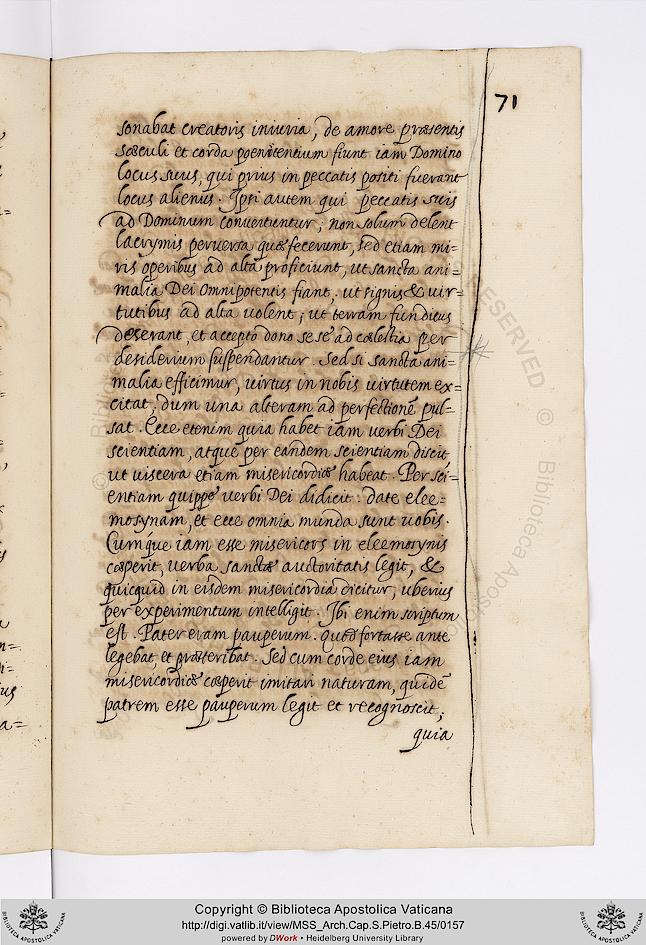 71
sonabat creatoris iniuria, de amore præsentis
sæculi et corda poenitentium fiunt iam Domino
locus suus, qui prius in peccatis positi fuerant
locus alienus. Ipsi autem qui peccatis suis
ad Dominum convertuntur; non solum delent
lacrymis perversa quæ fecerunt, sed etiam mi-
ris operibus ad alta proficiunt, ut sancta ani=
malia Dei omnipotentis fiant. ut signis & vir=
tutibus ad alta volent; ut terram funditus
deserant, et accepto dono se se ad cælestia per
desiderium suspendantur. Sed si sancta ani=
malia efficimur, virtus in nobis virtutem ex=
citat, dum una alteram ad perfectionē pul=
sat. Ecce etenim quia habet iam verbi Dei
scientiam, atque per eandem scientiam discit
ut viscera etiam misericordiæ habeat. Per sci=
entiam quippe verbi Dei didicit. date elee=
mosynam, et ecce omnia munda sunt vobis.
Cumque iam esse misericors in eleemosynis
cæperit, verba sanctæ auctoritatis legit, &
quicquid in eisdem misericordia dicitur, uberius
per experimentum intelligit. Ibi enim scriptum
est. Pater eram pauperum. quod fortasse ante
legebat, et præteribat. Sed cum corde eius iam
misericordiæ cæperit imitari naturam, quidē
patrem esse pauperum legit et recognoscit;
quia
Copyright © Biblioteca Apostolica Vaticana
http://digi.vatlib.it/view/MSS_Arch.Cap.S.Pietro.B.45/0157
powered by DWork • Heidelberg University Library